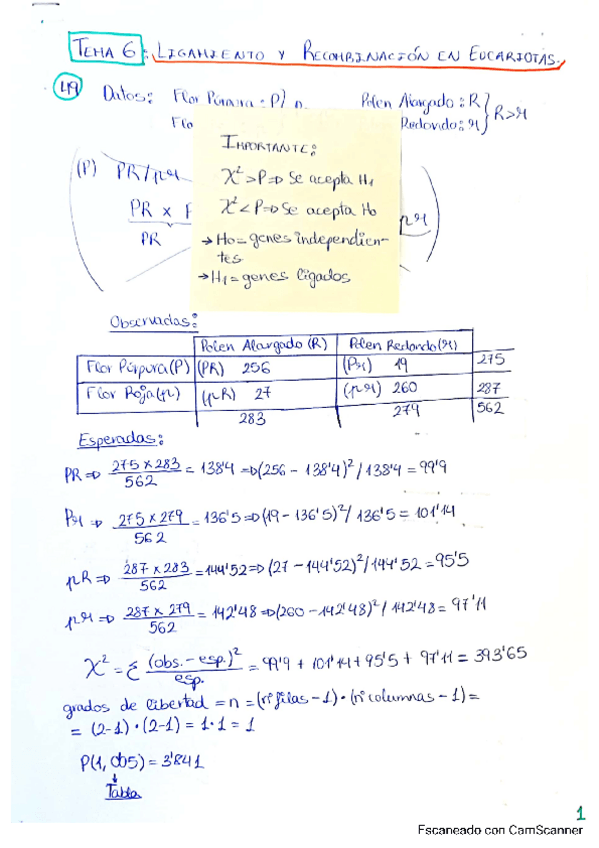 TEMA 6: LIGAMIENTO Y RECOMBINACIÓN EN EUCARIOTAS.
49 Datos: Flor Púrpura: P} Polen Alargado: R} R>r
Flo Redondo: r}
IMPORTANTE:
(P) PR/pr χ²>P=> Se acepta H1
PR x χ²<P=> Se acepta Ho pr
PR → Ho= genes independien-
tes
→ H1= genes ligados
Observadas:
Polen Alargado (R) Polen Redondo (r)
Flor Púrpura (P) (PR) 256 (Pr) 19 275
Flor Roja (p) (pR) 27 (pr) 260 287
283 279 562
Esperadas:
PR => 275 x 283 / 562 = 138'4 => (256 - 138'4)² / 138'4 = 99'9
Pr => 275 x 279 / 562 = 136'5 => (19 - 136'5)² / 136'5 = 101'14
pR => 287 x 283 / 562 = 144'52 => (27 - 144'52)² / 144'52 = 95'5
pr => 287 x 279 / 562 = 142'48 => (260 - 142'48)² / 142'48 = 97'11
χ² = Σ (obs. - esp.)² / esp. = 99'9 + 101'14 + 95'5 + 97'11 = 393'65
grados de libertad = n = (nº filas - 1) · (nº columnas - 1) =
= (2-1) · (2-1) = 1·1 = 1
P(1, 0'05) = 3'841
↓
Tabla
1
Escaneado con CamScanner